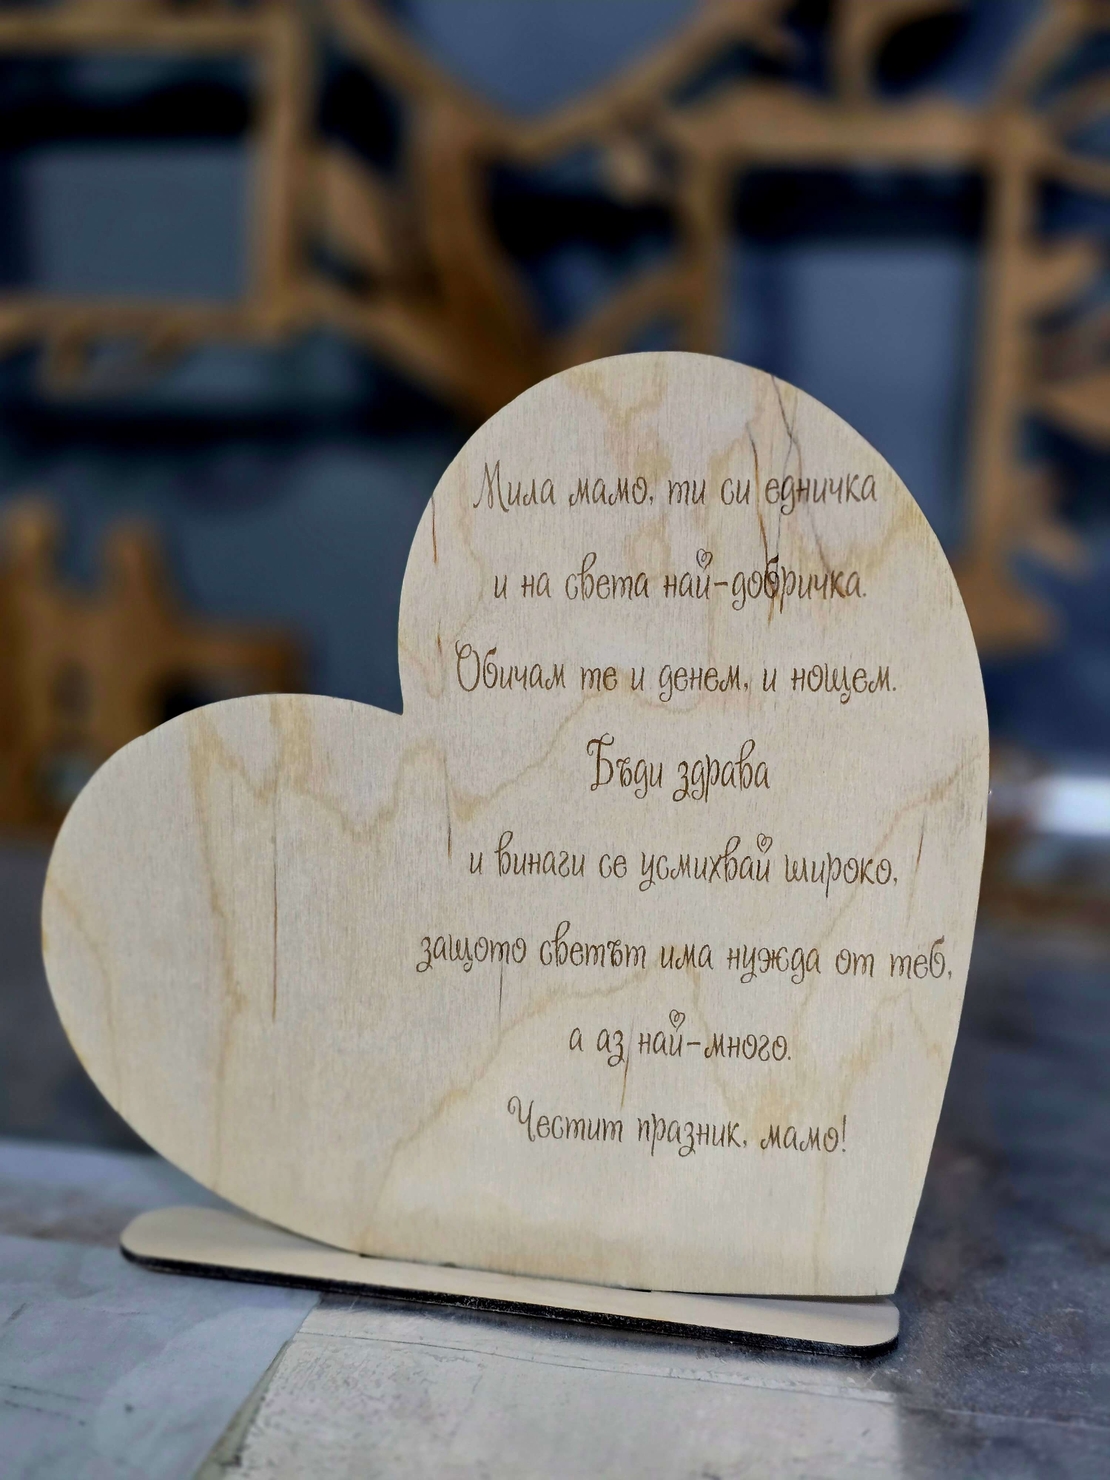 Мила мамо, ти си едничка
и на света най-добричка.
Обичам те и денем, и нощем.
Бъди здрава
и винаги се усмихвай широко,
защото светът има нужда от теб,
а аз най-много.
Честит празник, мамо!